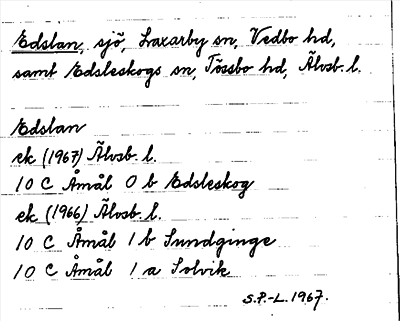 Edslan, sjö, Laxarby sn, Vedbo hd,
samt Edsleskogs sn, Tössbo hd, Älvsb. l.
Edslan
ek (1967) Älvsb. l.
10 C Åmål 0 b Edsleskog
ek (1966) Älvsb. l.
10 C Åmål 1 b Sundginge
10 C Åmål 1 a Solvik
S.P.-L. 1967.